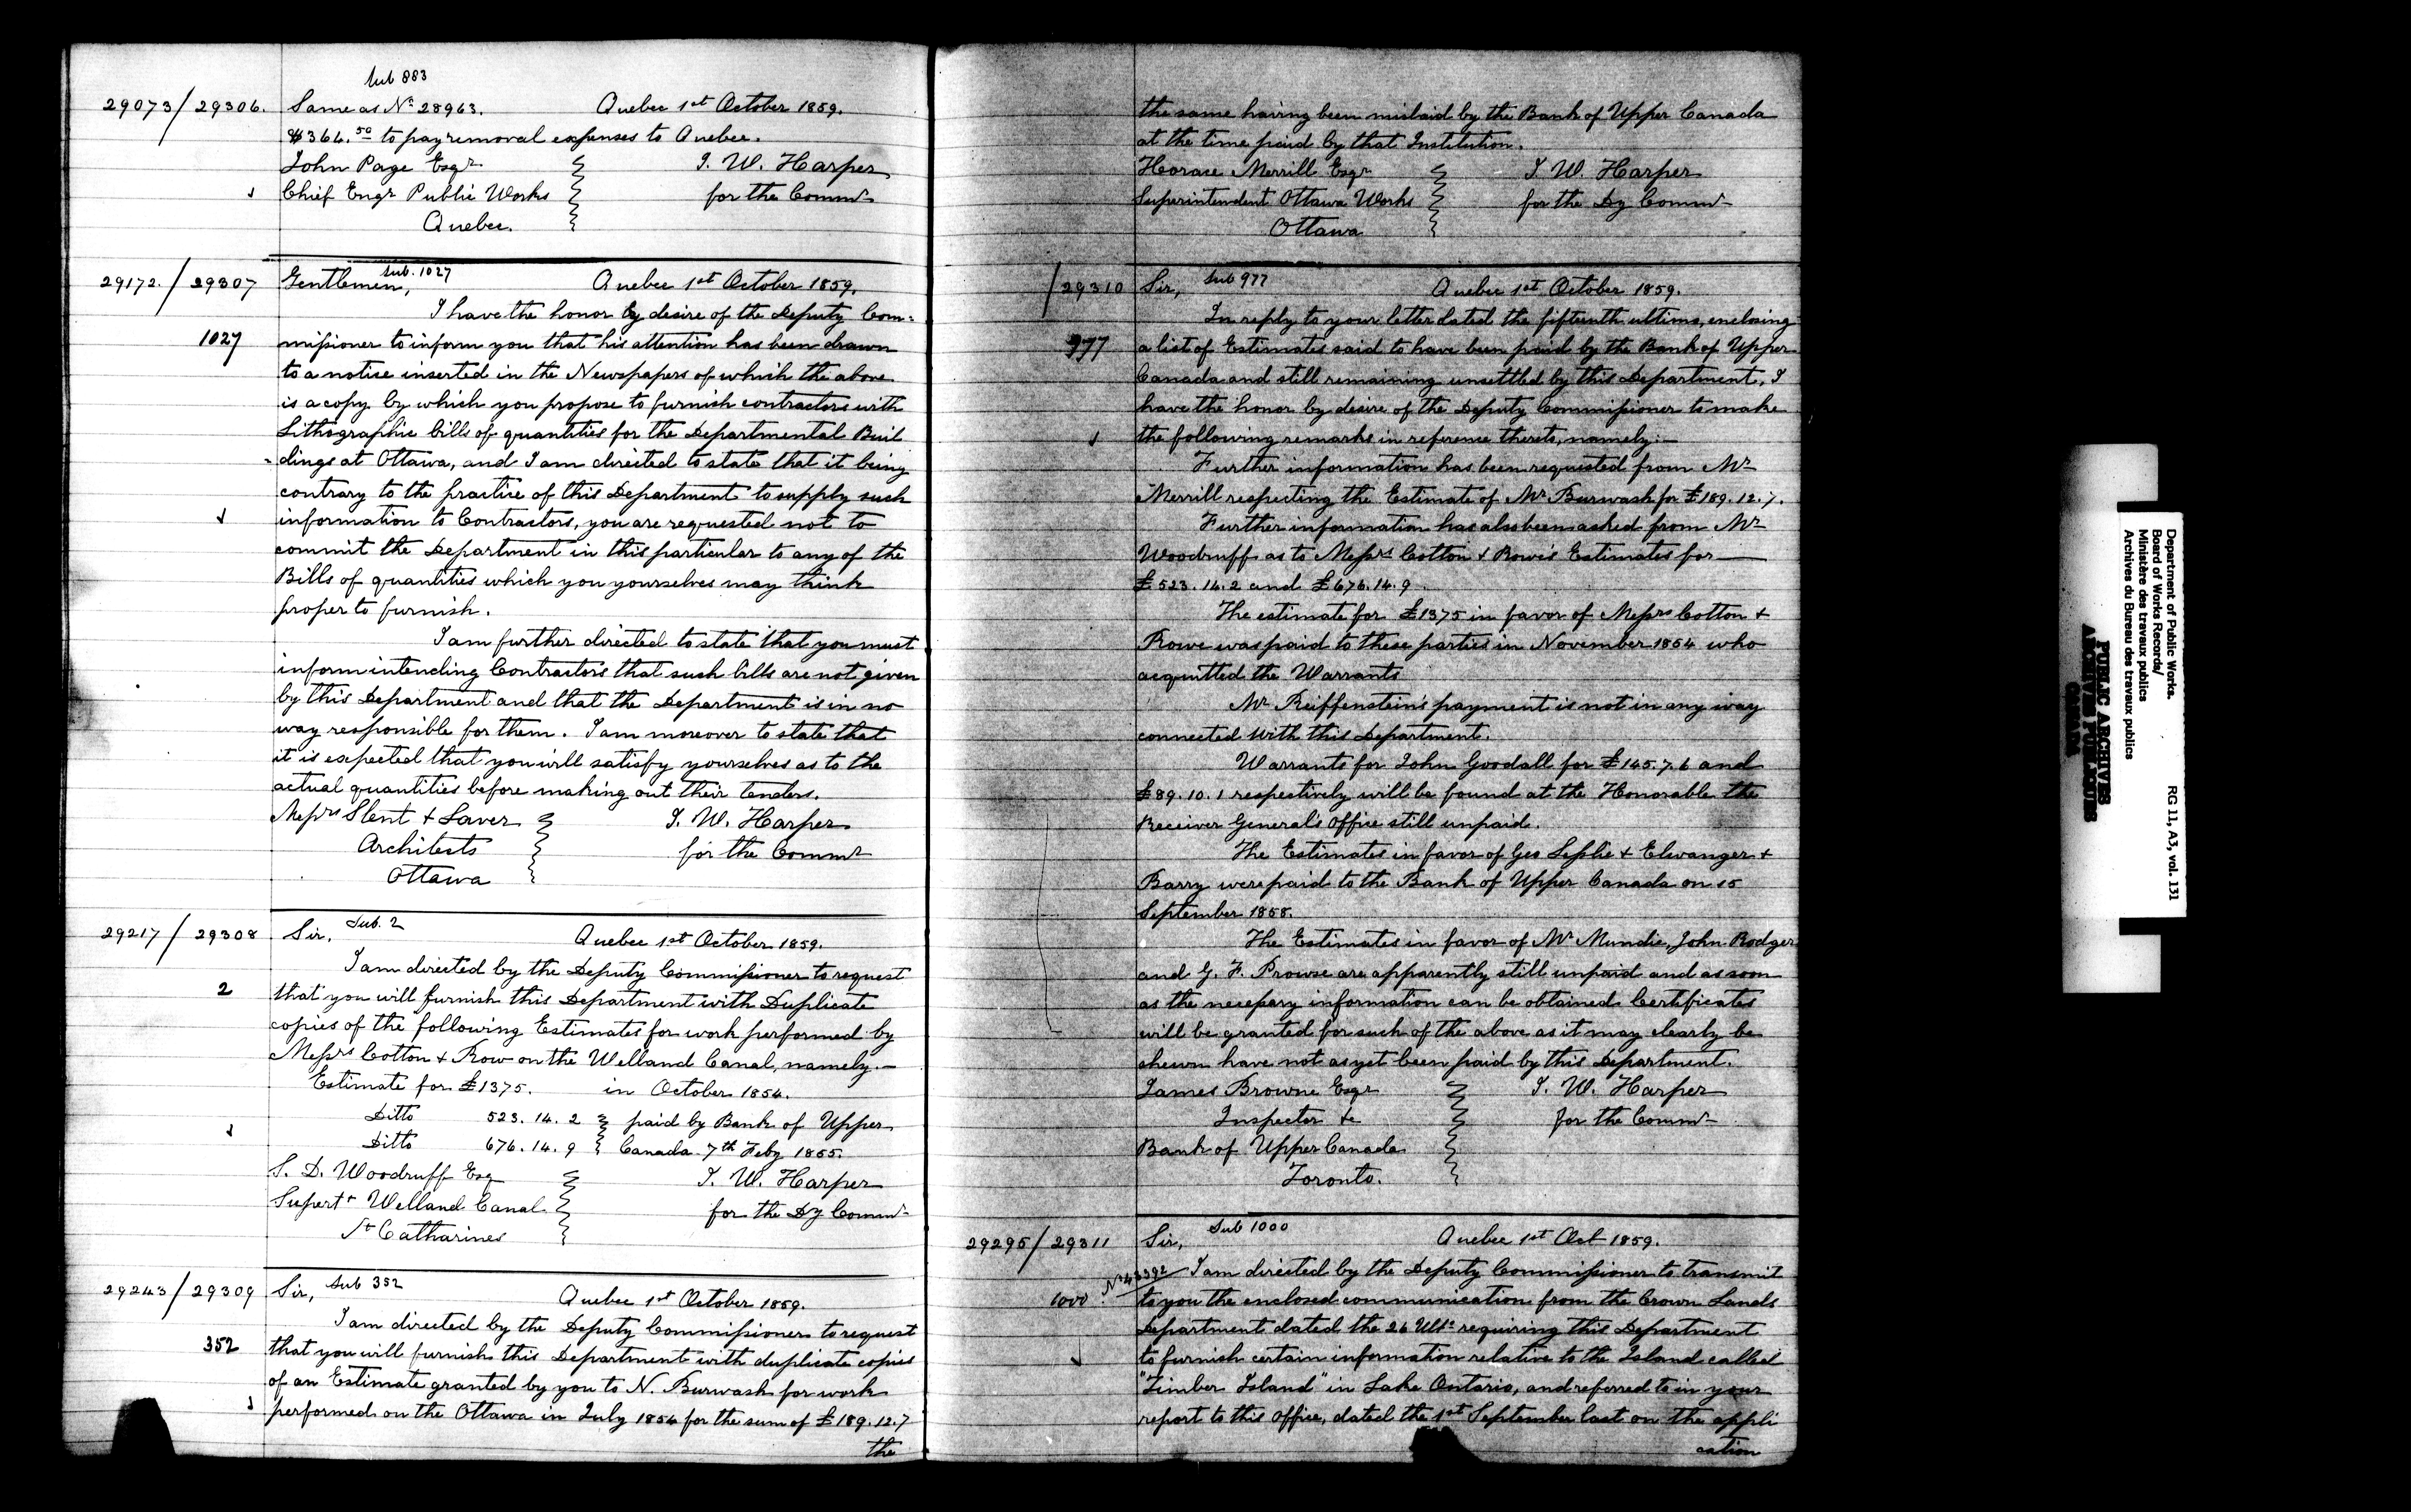 Sub 883
29073/29306. Same as No 28963. Quebec 1st October 1859.
$364.50 to pay removal expenses to Quebec.
John Page Esqr J. W. Harper
Chief Engr Public Works for the Commr
Quebec.
Sub. 1027
29172./29307 Gentlemen, Quebec 1st October 1859.
I have the honor by desire of the Deputy Com=
1027 missioner to inform you that his attention has been drawn
to a notice inserted in the Newspapers of which the above
is a copy by which you propose to furnish contractors with
Lithographic bills of quantities for the Departmental Buil
-dings at Ottawa, and I am directed to state that it being
contrary to the practice of this Department to supply such
information to Contractors, you are requested not to
commit the Department in this particular to any of the
Bills of quantities which you yourselves may think
proper to furnish.
I am further directed to state that you must
inform intending Contractors that such bills are not given
by this Department and that the Department is in no
way responsible for them. I am moreover to state that
it is expected that you will satisfy yourselves as to the
actual quantities before making out their tenders.
Messrs Stent & Laver J. W. Harper
Architects for the Commr
Ottawa
Sub. 2
29217/29308 Sir, Quebec 1st October 1859.
I am directed by the Deputy Commissioner to request
2 that you will furnish this Department with Duplicate
copies of the following Estimates for work performed by
Messrs Cotton & Row on the Welland Canal, namely.—
Estimate for £1375. in October 1854.
Ditto 523.14.2 paid by Bank of Upper
Ditto 676.14.9 Canada 7th Feby 1855.
S. D. Woodruff Esq J. W. Harper
Supert Welland Canal for the Dy Commr
St Catharines
Sub 352
29243/29309 Sir, Quebec 1st October 1859.
I am directed by the Deputy Commissioner to request
352 that you will furnish this Department with duplicate copies
of an Estimate granted by you to N. Burwash for work
performed on the Ottawa in July 1854 for the sum of £189.12.7
the
the same having been mislaid by the Bank of Upper Canada
at the time paid by that Institution.
Horace Merrill Esqr J. W. Harper
Superintendent Ottawa Works for the Dy Commr
Ottawa
Sub 977
/29310 Sir, Quebec 1st October 1859.
In reply to your letter dated the fifteenth ultimo, enclosing
977 a list of Estimates said to have been paid by the Bank of Upper
Canada and still remaining unsettled by this Department, I
have the honor by desire of the Deputy Commissioner to make
the following remarks in reference thereto, namely:—
Further information has been requested from Mr
Merrill respecting the Estimate of Mr Burwash for £189.12.7.
Further information has also been asked from Mr
Woodruff as to Messrs Cotton & Rowe's Estimates for —
£523.14.2 and £676.14.9.
The estimate for £1375 in favor of Messrs Cotton &
Rowe was paid to these parties in November 1854 who
acquitted the Warrants
Mr Reiffenstein's payment is not in any way
connected with this Department.
Warrants for John Goodall for £145.7.6 and
£89.10.1 respectively will be found at the Honorable the
Receiver General's Office still unpaid.
The Estimates in favor of Geo Leslie & Elwanger &
Barry were paid to the Bank of Upper Canada on 15
September 1858.
The Estimates in favor of Mr Mundie, John Rodger
and G. F. Prowse are apparently still unpaid and as soon
as the necessary information can be obtained Certificates
will be granted for such of the above as it may clearly be
shewn have not as yet been paid by this Department.
James Browne Esqr J. W. Harper
Inspector &c for the Commr
Bank of Upper Canada
Toronto.
Sub 1000
29295/29311 Sir, Quebec 1st Oct 1859.
No 43392 I am directed by the Deputy Commissioner to transmit
1000 to you the enclosed communication from the Crown Lands
Department dated the 26 Ulto requiring this Department
to furnish certain information relative to the Island called
"Timber Island" in Lake Ontario, and referred to in your
report to this Office, dated the 1st September last on the appli
cation
Department of Public Works.
Board of Works Records/
Ministère des travaux publics
Archives du Bureau des travaux publics
RG 11, A3, vol. 131
PUBLIC ARCHIVES
ARCHIVES PUBLIQUES
CANADA